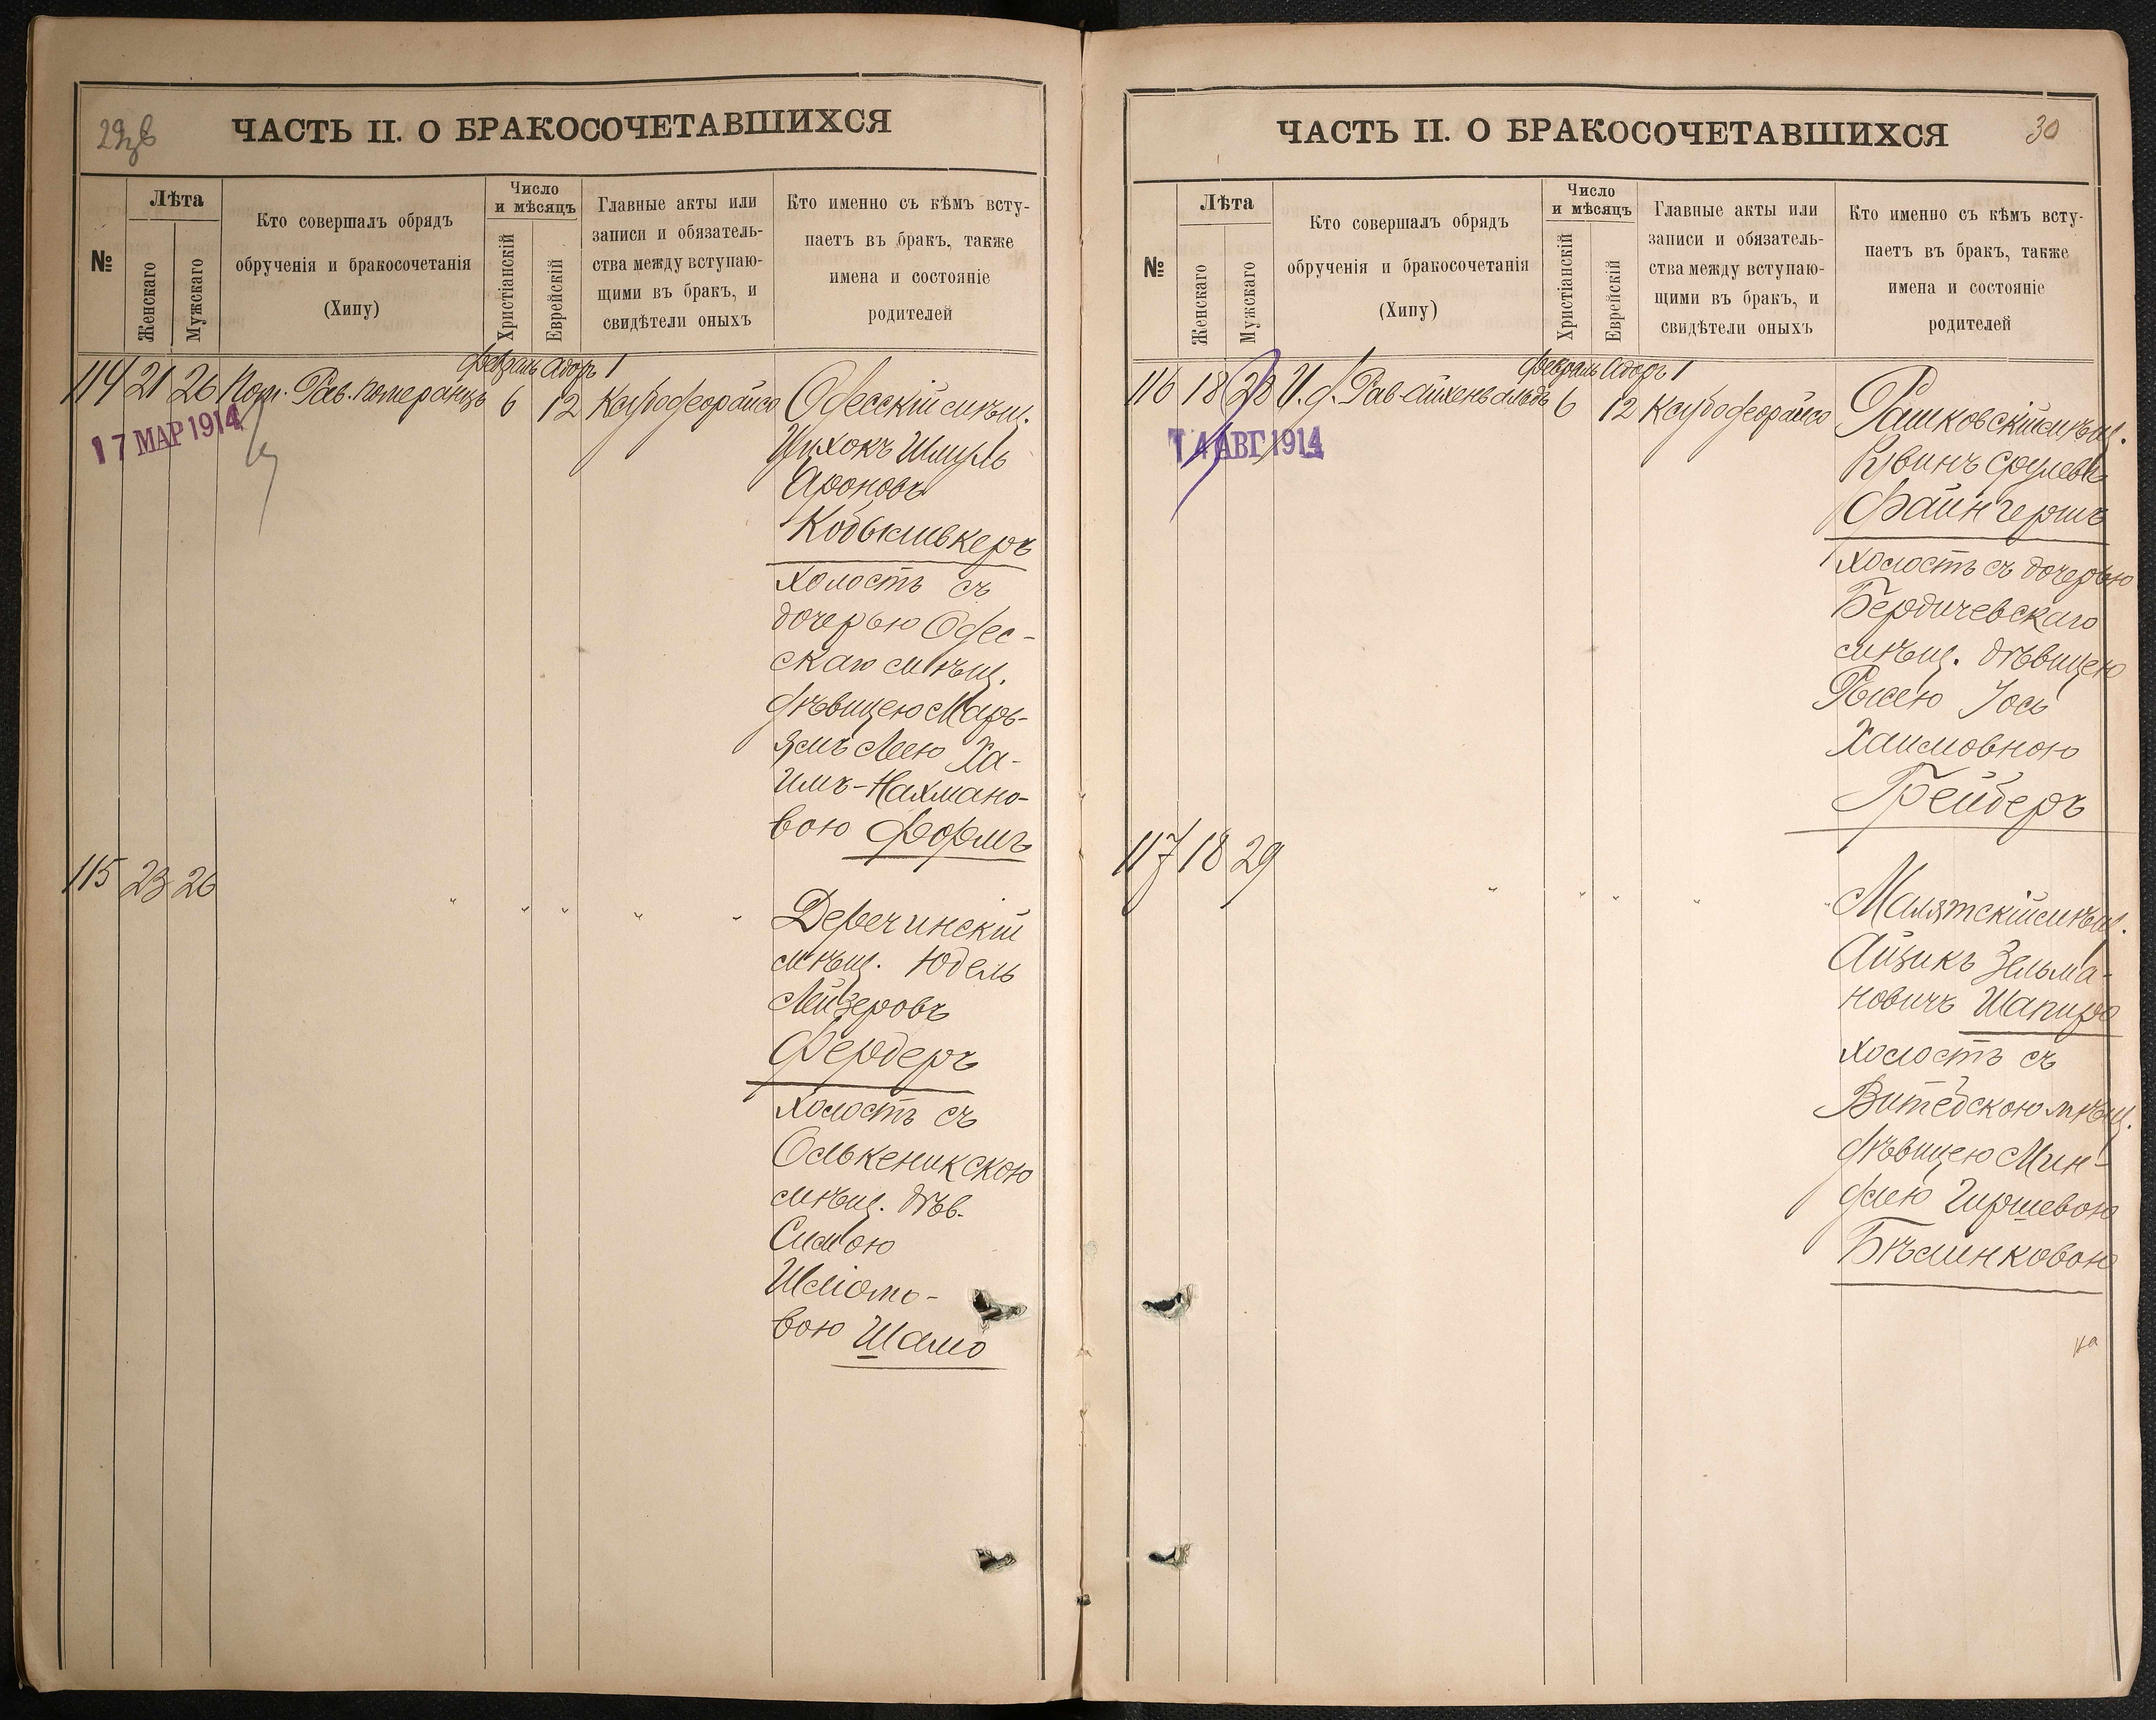 29 об
ЧАСТЬ II. О БРАКОСОЧЕТАВШИХСЯ
№
Лѣта
Женскаго
Мужскаго
Кто совершалъ обрядъ
обрученія и бракосочетанія
(Хипу)
Число
и мѣсяцъ
Христіанскій
Еврейскій
Главные акты или
записи и обязатель-
ства между вступаю-
щими въ бракъ, и
свидѣтели оныхъ
Кто именно съ кѣмъ всту-
паетъ въ бракъ, также
имена и состояніе
родителей
Февраль Адоръ 1
114 21 26 Пом. Рав. Померанцъ 6 12 Ксубофеорайсо Одесскій мѣщ.
17 МАР 1914
Ицхокъ Шмуль
Ароновъ
Кобыливкеръ
холостъ съ
дочерью Одес-
скаго мѣщ.
дѣвицею Марь-
ямъ Леею Ха-
имъ-Нахмано-
вою Формъ
115 23 26 " " " " "
Деречинскій
мѣщ. Юдель
Лейзеровъ
Фердеръ
холостъ съ
Олькеникскою
мѣщ. дѣв.
Симою
Шліомо-
вою Шамо
ЧАСТЬ II. О БРАКОСОЧЕТАВШИХСЯ
30
№
Лѣта
Женскаго
Мужскаго
Кто совершалъ обрядъ
обрученія и бракосочетанія
(Хипу)
Число
и мѣсяцъ
Христіанскій
Еврейскій
Главные акты или
записи и обязатель-
ства между вступаю-
щими въ бракъ, и
свидѣтели оныхъ
Кто именно съ кѣмъ всту-
паетъ въ бракъ, также
имена и состояніе
родителей
Февраль Адоръ 1
116 18 28 И. д. Рав. Айхенвальдъ 6 12 Ксубофеорайсо Рашковскій мѣщ.
14 АВГ 1914
Рувинъ Срулевъ
Файнгершъ
холостъ съ дочерью
Бердичевскаго
мѣщ. дѣвицею
Рысею Іось
Хаимовною
Грейберъ
117 18 29 " " " " "
Малятскій мѣщ.
Айзикъ Зельма-
новичъ Шапиро
холостъ съ
Витебскою мѣщ.
дѣвицею Мин-
длею Гиршевою
Бѣлинковою